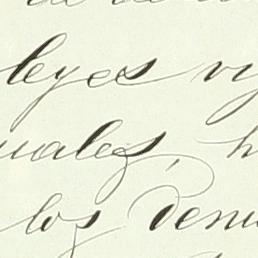 leyes vi
uales, h
los denu